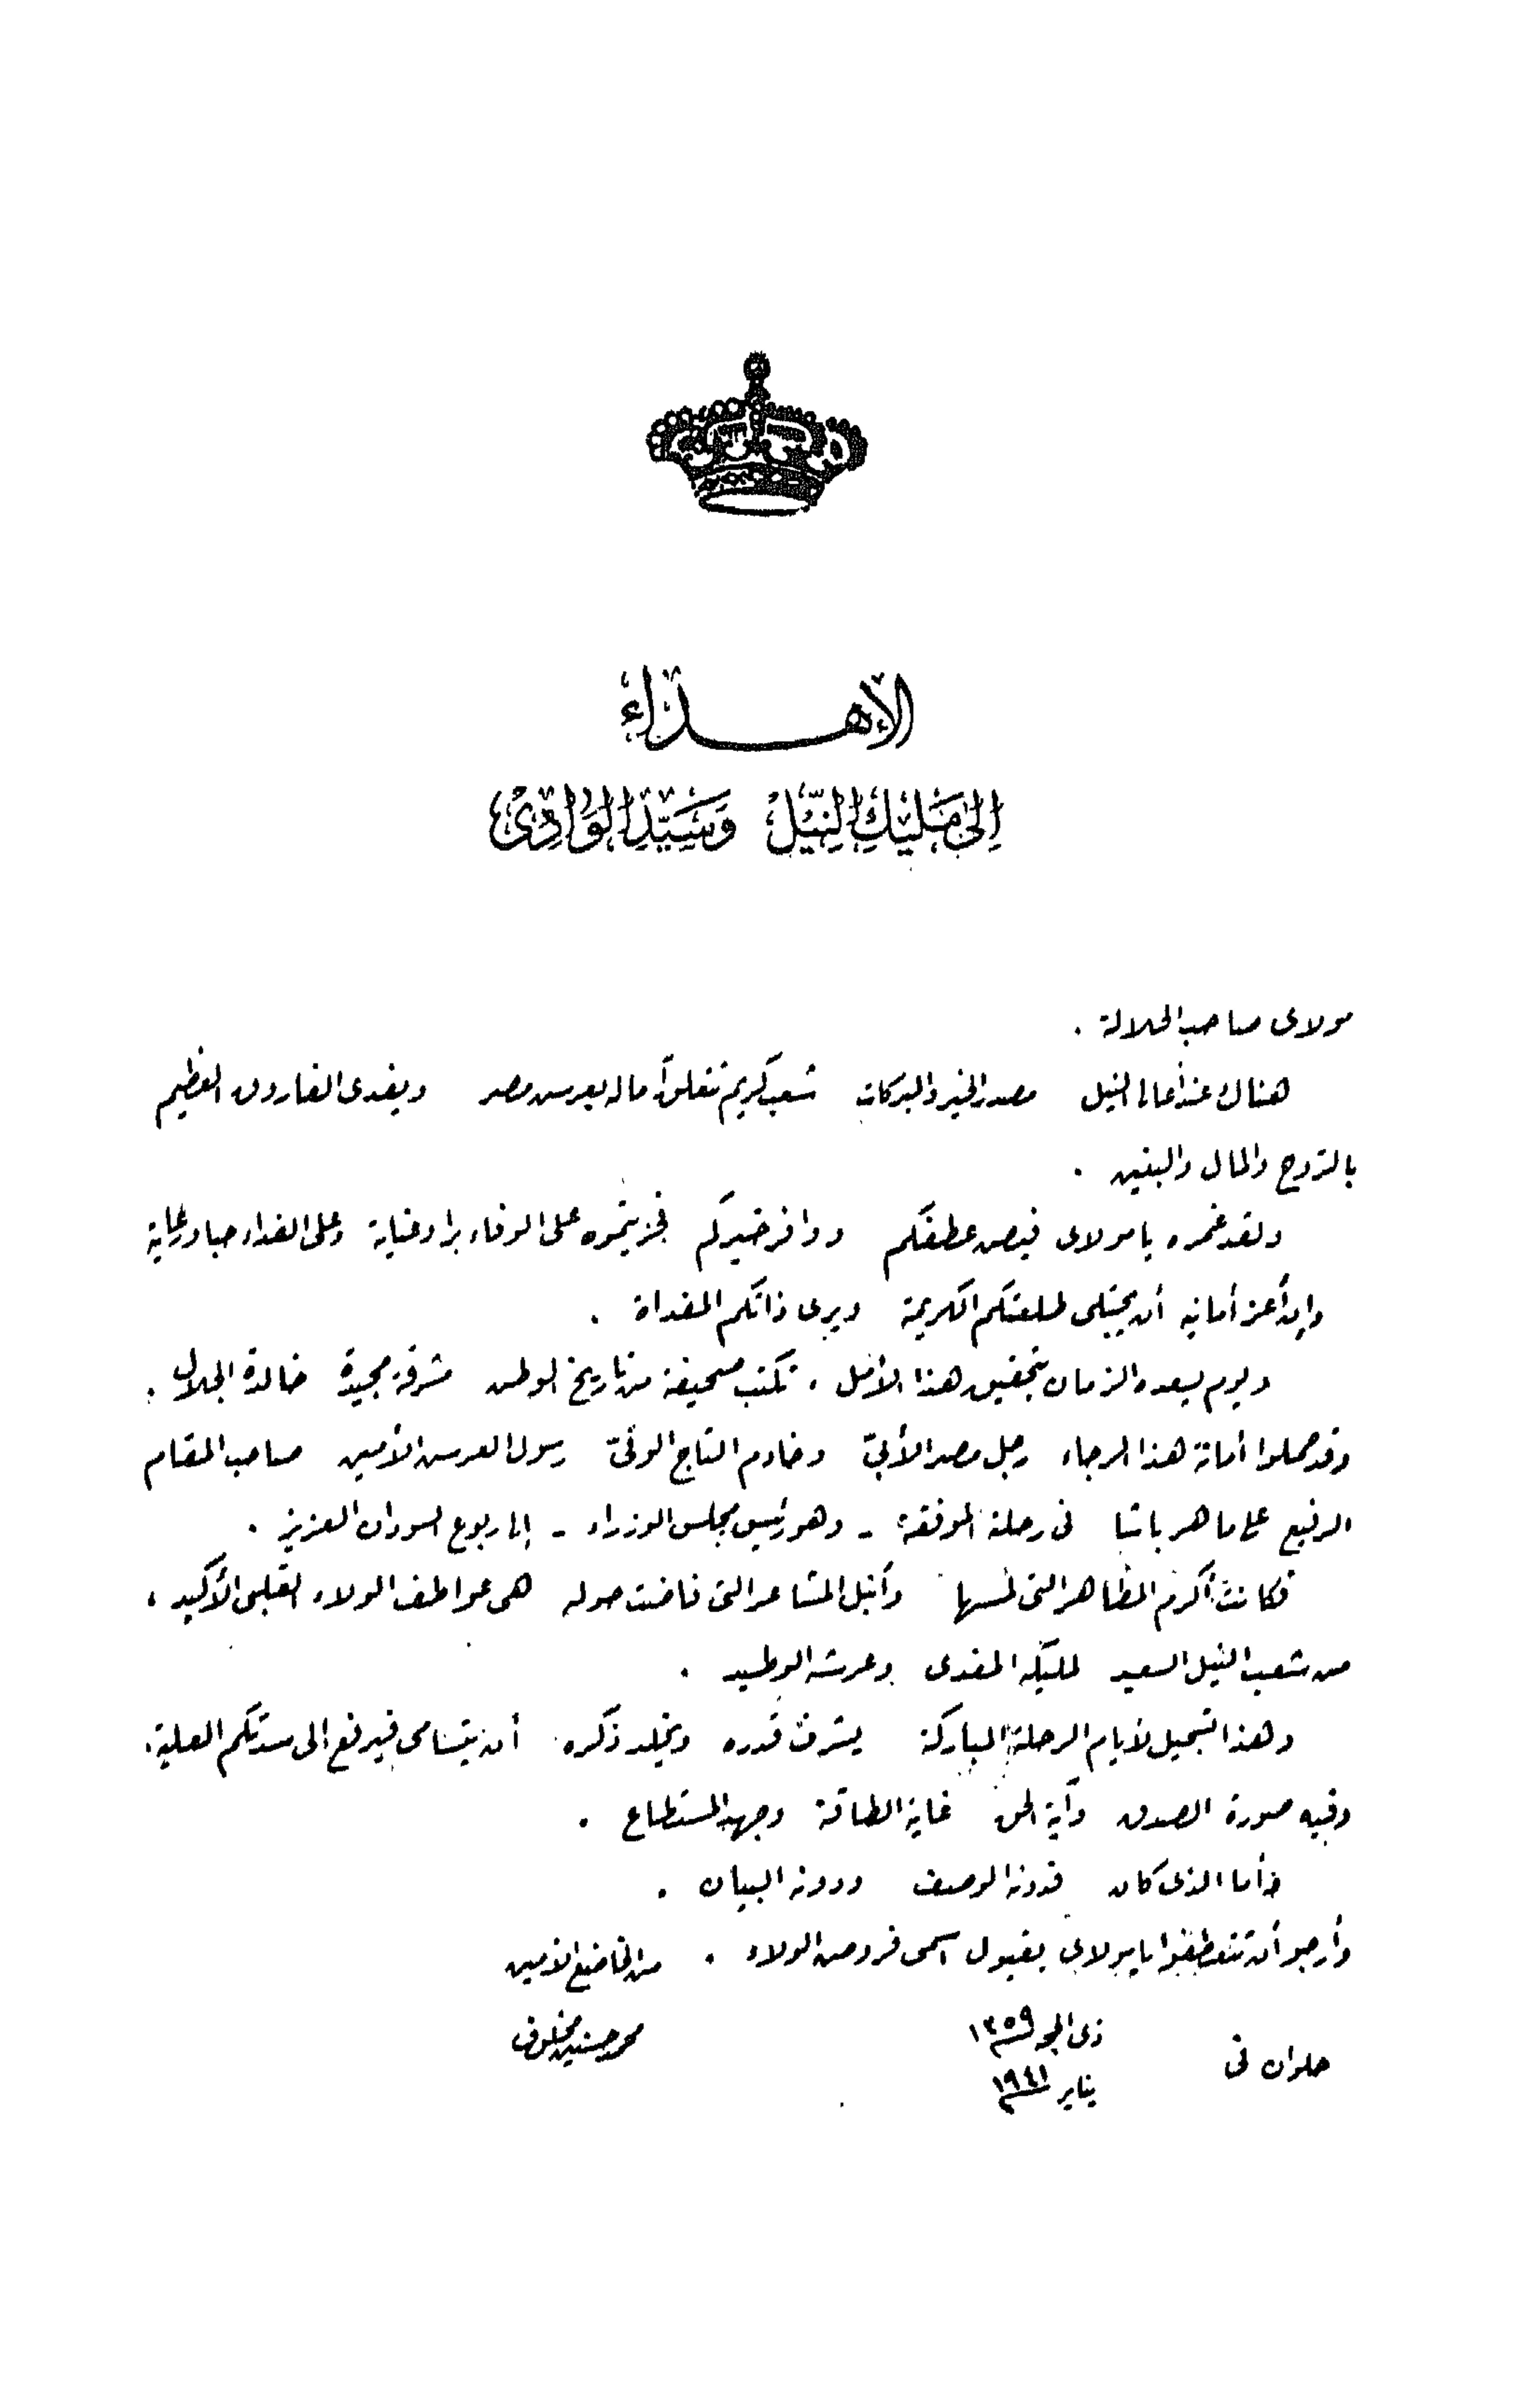 الإهداء
إِلىٰ مَلِيكِ النِّيْلْ وَسَيِّدِ الوَادِىْ
مولاى صاحب الجلالة .
هناك عند أعالى النيل مصدر الخير والبركات شعب كريم تتعلق آماله بعرش مصر ويفدى الفاروق العظيم
بالروح والمال والبنين .
ولقد غمره يا مولاى فيض عطفكم ووافر خيركم فجزيتموه على الوفاء برا وعناية وعلى الفداء حبا ورعاية
وإن أعز أمانيه أن يجتلى طلعتكم الكريمة ويرى ذاتكم المفداة .
ويوم يسعده الزمان بتحقيق هذا الأمل ، تكتب صحيفة من تاريخ الوطن مشرقة مجيدة خالدة الجلال .
وقد حملوا أمانة هذا الرجاء رجل مصر الأبىّ وخادم التاج الوفىّ رسول العرش الأمين صاحب المقام
الرفيع على ماهر باشا فى رحلته الموفقة - وهو رئيس مجلس الوزراء - إلى ربوع السودان العزيز .
فكانت أكرم المظاهر التى لمسها وأنبل المشاعر التى فاضت حوله هى عواطف الولاء القلبى الأكيد ،
من شعب النيل السعيد لمليكه المفدى وعرشه الوطيد .
وهذا تسجيل لأيام الرحلة المباركة يشرف قدره ويخلد ذكره أن يتسامى فيرفع الى سدتكم العلية ،
وفيه صورة الصدق وآية الحق غاية الطاقة وجهد المستطاع .
وأما الذى كان فدونه الوصف ودونه البيان .
وأرجو أن تتعطفوا يا مولاى بقبول أسمى فروض الولاء . من الخاضع الأمين
حلوان فى ذى الحجة ١٣٥٩ محمد حسنين مخلوف
يناير ١٩٤١